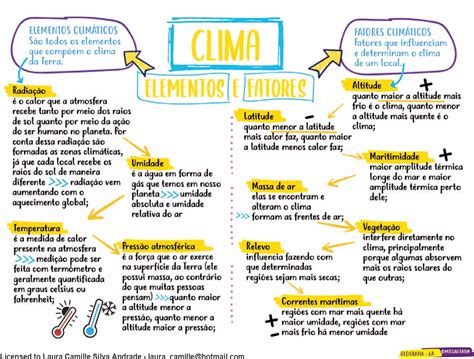 CLIMA
ELEMENTOS E FATORES
ELEMENTOS CLIMÁTICOS
São todos os elementos
que compõem o clima
da Terra.
Radiação
é o calor que a atmosfera
recebe tanto por meio dos raios
de sol quanto por meio da ação
do ser humano no planeta. Por
conta dessa radiação são
formadas as zonas climáticas,
já que cada local recebe os
raios do sol de maneira
diferente >>> radiação vem
aumentando com o
aquecimento global;
Umidade
é a água em forma de
gás que temos em nosso
planeta >>> umidade
absoluta e umidade
relativa do ar
Temperatura
é a medida de calor
presente na atmosfera
>>> medição pode ser
feita com termômetro e
geralmente quantificada
em graus celsius ou
fahrenheit;
Pressão atmosférica
é a força que o ar exerce
na superfície da Terra (ele
possui massa, ao contrário
do que muitas pessoas
pensam) >>> quanto maior
a altitude menor a
pressão, quanto menor a
altitude maior a pressão;
FATORES CLIMÁTICOS
fatores que influenciam
e determinam o clima
de um local.
Altitude
quanto maior a altitude mais
frio é o clima, quanto menor
a altitude mais quente é o
clima;
Latitude
quanto menor a latitude
mais calor faz, quanto maior
a latitude menos calor faz;
Maritimidade
maior amplitude térmica
longe do mar e maior
amplitude térmica perto
dele;
Massa de ar
elas se encontram e
alteram o clima
>>> formam as frentes de ar;
Vegetação
interfere diretamente no
clima, principalmente
porque algumas absorvem
mais os raios solares do
que outras;
Relevo
influencia fazendo com
que determinadas
regiões sejam mais secas;
Correntes marítimas
regiões com mais quente há
maior umidade, regiões com
mar mais frio há menor umidade;
GEOGRAFIA - GA
Licensed to Laura Camille Silva Andrade - laura_camille@hotmail.com